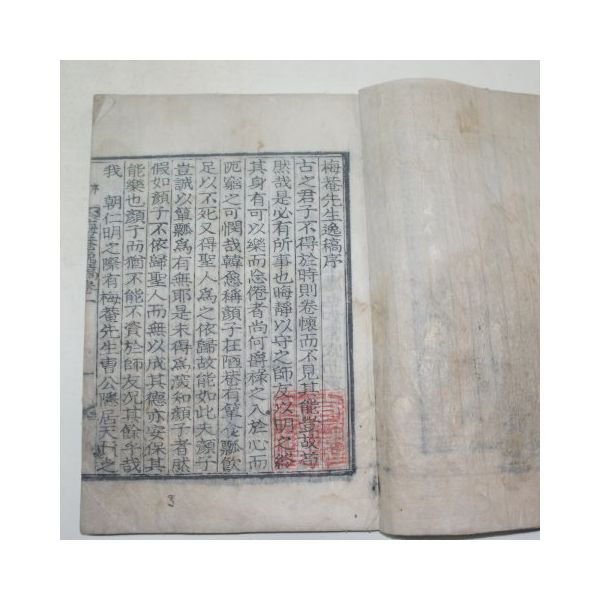 梅菴先生逸稿序
古之君子不得於時則卷懷而不見其能豈故苟
然哉是必有所事也晦靜以守之師友以明之給
其身有可以樂而忘倦者尚何爵祿之入於心而
阨窮之可憫哉韓愈稱顔子在陋巷有簞食瓢飮
足以不死又得聖人爲之依歸故能如此夫顔子
豈誠以簞瓢爲有無耶是未得爲深知顔子者然
假如顔子不依歸聖人而無以成其德亦安保其
能樂也顔子而猶不能不資於師友况其餘乎哉
我 朝仁明之際有梅菴先生曺公隱居天 之
序
3